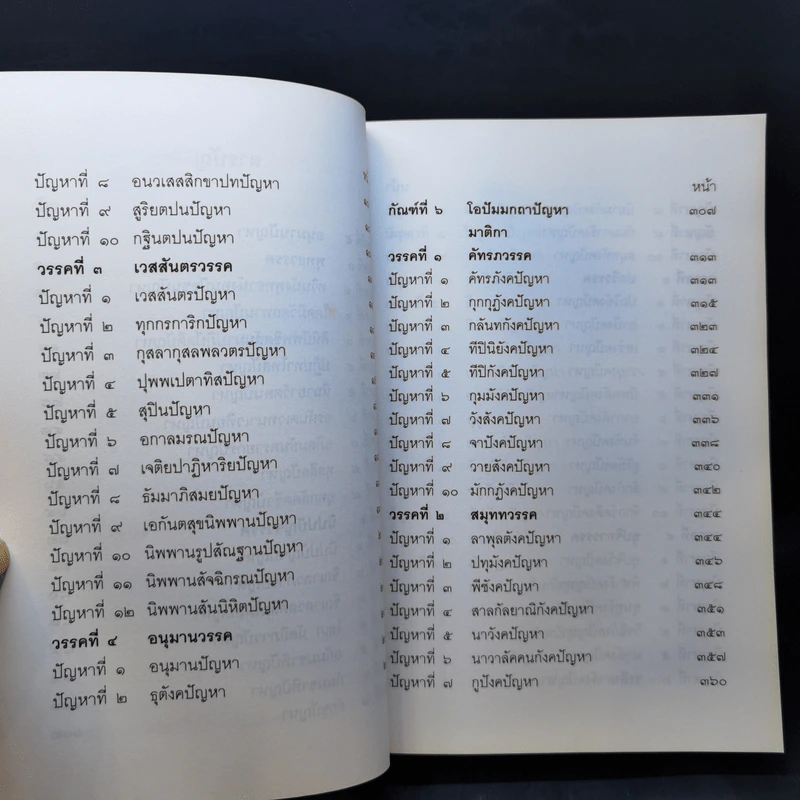 ปัญหาที่ ๘ อนวเสสสิกขาปทปัญหา
ปัญหาที่ ๙ สูริยตปนปัญหา
ปัญหาที่ ๑๐ กฐินตปนปัญหา
วรรคที่ ๓ เวสสันตรวรรค
ปัญหาที่ ๑ เวสสันตรปัญหา
ปัญหาที่ ๒ ทุกกรการิกปัญหา
ปัญหาที่ ๓ กุสลากุสลพลวตรปัญหา
ปัญหาที่ ๔ ปุพพเปตาทิสปัญหา
ปัญหาที่ ๕ สุปินปัญหา
ปัญหาที่ ๖ อกาลมรณปัญหา
ปัญหาที่ ๗ เจติยปาฏิหาริยปัญหา
ปัญหาที่ ๘ ธัมมาภิสมยปัญหา
ปัญหาที่ ๙ เอกันตสุขนิพพานปัญหา
ปัญหาที่ ๑๐ นิพพานรูปสัณฐานปัญหา
ปัญหาที่ ๑๑ นิพพานสัจฉิกรณปัญหา
ปัญหาที่ ๑๒ นิพพานสันนิหิตปัญหา
วรรคที่ ๔ อนุมานวรรค
ปัญหาที่ ๑ อนุมานปัญหา
ปัญหาที่ ๒ ธุตังคปัญหา
หน้า
กัณฑ์ที่ ๖ โอปัมมกถาปัญหา ๓๐๗
มาติกา
วรรคที่ ๑ คัทรภวรรค ๓๑๓
ปัญหาที่ ๑ คัทรภังคปัญหา ๓๑๓
ปัญหาที่ ๒ กุกกุฏังคปัญหา ๓๑๕
ปัญหาที่ ๓ กลันทกังคปัญหา ๓๒๓
ปัญหาที่ ๔ ทีปินิยังคปัญหา ๓๒๔
ปัญหาที่ ๕ ทีปิกังคปัญหา ๓๒๗
ปัญหาที่ ๖ กุมมังคปัญหา ๓๓๑
ปัญหาที่ ๗ วังสังคปัญหา ๓๓๖
ปัญหาที่ ๘ จาปังคปัญหา ๓๓๘
ปัญหาที่ ๙ วายสังคปัญหา ๓๔๐
ปัญหาที่ ๑๐ มักกฏังคปัญหา ๓๔๒
วรรคที่ ๒ สมุททวรรค ๓๔๔
ปัญหาที่ ๑ ลาพุลตังคปัญหา ๓๔๔
ปัญหาที่ ๒ ปทุมังคปัญหา ๓๔๖
ปัญหาที่ ๓ พีชังคปัญหา ๓๔๘
ปัญหาที่ ๔ สาลกัลยาณิกังคปัญหา ๓๕๑
ปัญหาที่ ๕ นาวังคปัญหา ๓๕๓
ปัญหาที่ ๖ นาวาลัคคนกังคปัญหา ๓๕๗
ปัญหาที่ ๗ กูปังคปัญหา ๓๖๐